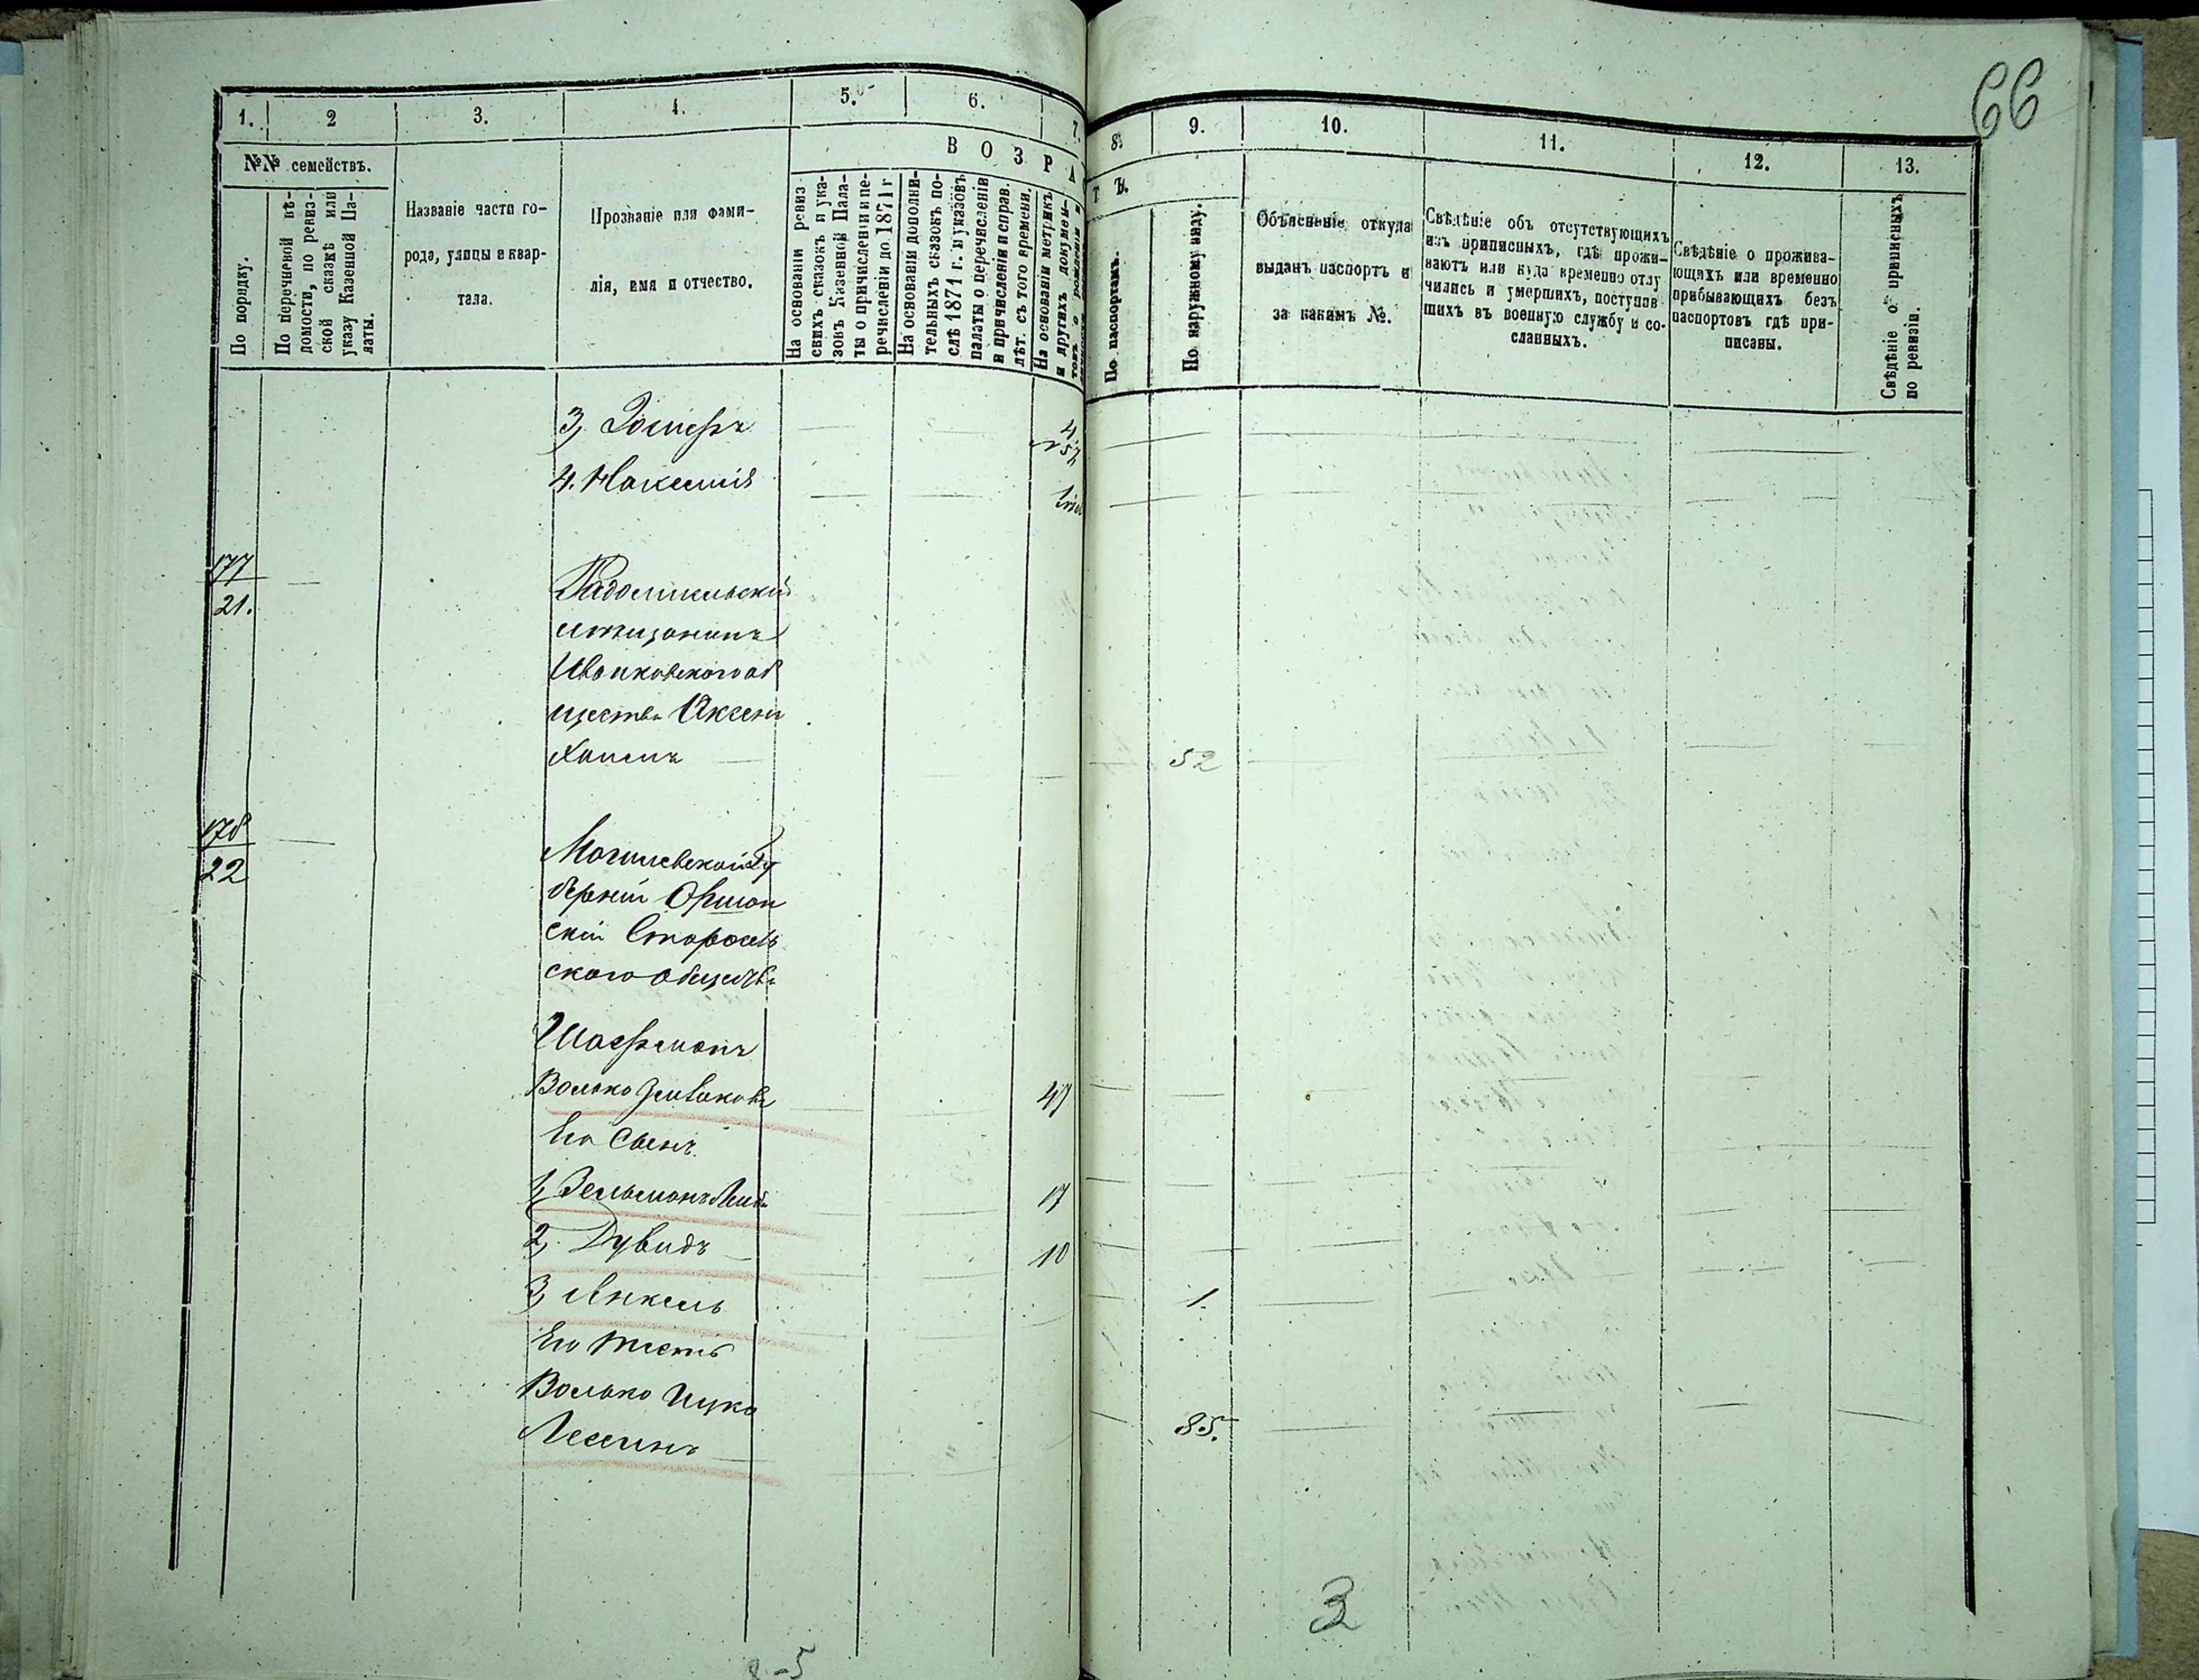 66
1. 2 3. 4. 5. 6. 7. 8. 9. 10. 11. 12. 13.
№№ семействъ.
По порядку.
По перечневой вѣ-
домости, по ревиз-
ской сказкѣ или
указу Казенной Па-
латы.
Названіе части го-
рода, улицы и квар-
тала.
Прозваніе или фами-
лія, имя и отчество.
ВОЗРАСТЪ.
На основаніи ревиз
скихъ сказокъ и ука-
зовъ Казенной Пала-
ты о причисленіи и пе-
речисленіи до 1871 г
На основаніи дополни-
тельныхъ сказокъ по-
слѣ 1871 г. и указовъ
палаты о перечисленіи
и причисленіи и справ.
лѣт. съ того времени.
На основаніи метрикъ
и другихъ докумен-
товъ о рожденіи и
По паспортамъ.
По наружному виду.
Объясненіе откуда
выданъ паспортъ и
за какимъ №.
Свѣдѣніе объ отсутствующихъ
изъ приписныхъ, гдѣ прожи-
ваютъ или куда временно отлу
чились и умершихъ, поступив
шихъ въ военную службу и со-
сланныхъ.
Свѣдѣніе о прожива-
ющихъ или временно
прибывающихъ безъ
паспортовъ гдѣ при-
писаны.
Свѣдѣніе о приписныхъ
по ревизіи.
3, 4
4.
177
21.
Радомысльскій
мѣщанинъ
Иванковскаго об
щества
Хаимъ 52
178
22
Могилевской Гу
берніи Оршан
скій Старосель
скаго общества
Шаферманъ
Волько 47
Его Сынъ
1, Зельманъ 17
2, Дувидъ 10
3, Янкель 1.
Его тесть
Волько Ицко
Лесинъ 85.
3